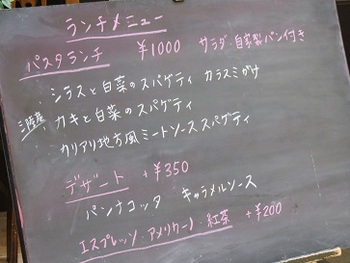 ランチメニュー
パスタランチ ¥1000 サラダ・自家製パン付き
・シラスと白菜のスパゲティ カラスミがけ
三陸産・カキと白菜のスパゲティ
・カリアリ地方風ミートソーススパゲティ
デザート +¥350
パンナコッタ キャラメルソース
エスプレッソ・アメリカーノ・紅茶 +¥200